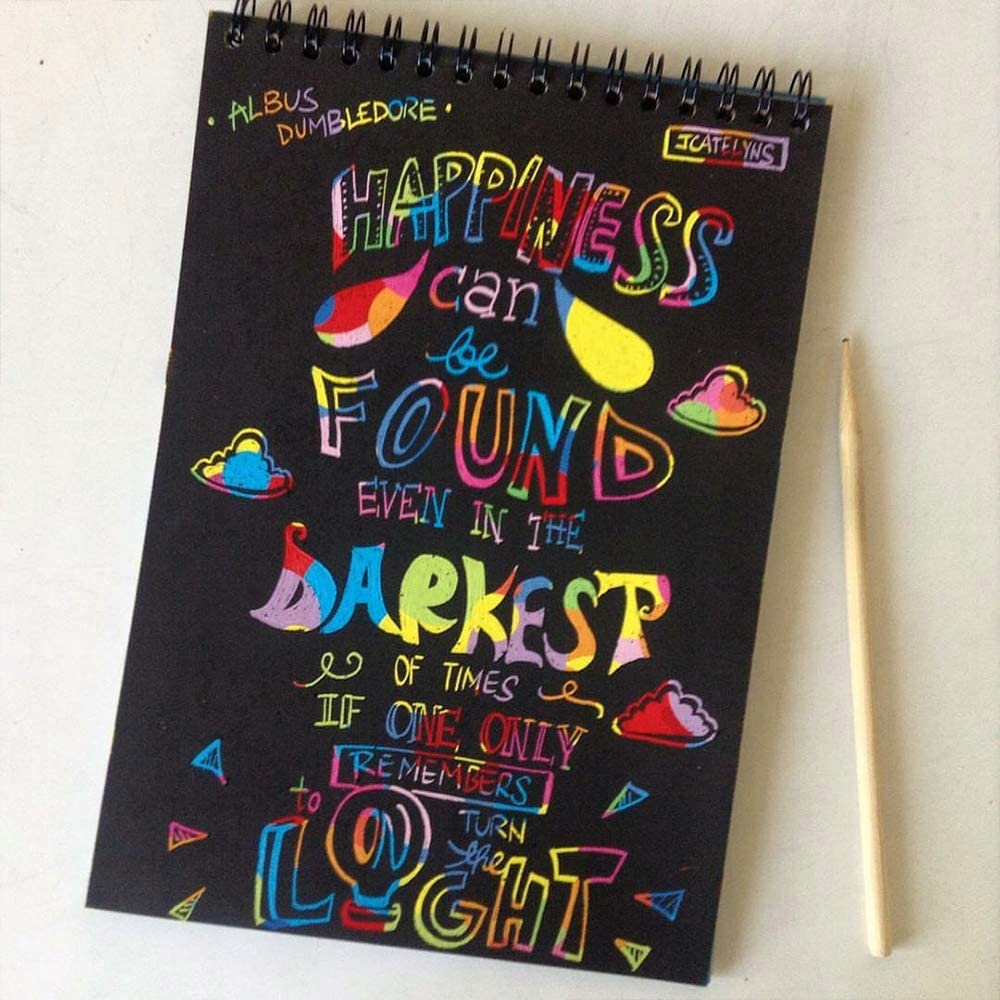 • ALBUS
DUMBLEDORE •
JCATELYNS
HAPPINESS
can
be
FOUND
EVEN IN THE
DARKEST
OF TIMES
IF ONE ONLY
REMEMBERS
to TURN
ON the
LIGHT